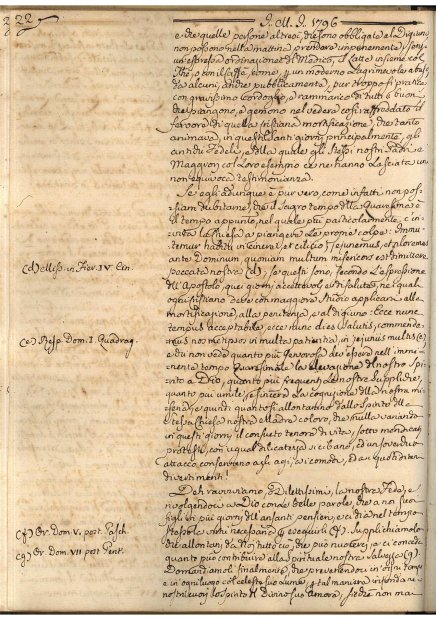 222
J. M. J. 1796
e che quelle persone altresì, che sono obbligate al Digiuno
non possono nella mattina prendere
un'espressa ordinazione di Medico, il Latte insieme col
Thè, o con il Caffè, come un moderno lagrimevole abuso
da alcuni, anche pubblicamente, pur troppo si pratica
con gravissimo Cordoglio, e rammarico di tutti i buoni
che piangono, e gemono nel vedere così raffreddato il
fervore di quella cristiana mortificazione, che tanto
animava, in questi Santi giorni principalmente, gli
antichi Fedeli, e della quale gli stessi nostri Padri e
Maggiori col Loro esempio ce ne hanno Lasciata una
non equivoca testimonianza.
Se egli adunque è pur vero, come infatti non pos-
siam dubitarne, che il Sagro tempo della Quaresima è
il tempo appunto, nel quale più particolarmente c'in-
vita la Chiesa a piangere Le proprie colpe: Immu-
temur habitu in cinere, et cilicio: jejunemus, et ploremus
ante Dominum, quoniam multum misericors est dimittere
peccata nostra (d); se questi sono, secondo L'espressione
dell'Apostolo, que' giorni accettevoli, e di salute, ne' quali
ogni cristiano deve con maggiore studio applicarsi alla
mortificazione, alla penitenza, e al digiuno: Ecce nunc
tempus acceptabile, ecce nunc dies salutis, commende-
mus nos metipsos in multa patientia, in jejuniis multis (e)
e chi non vede quanto più fervorosa dev'essere nell'immi-
nente tempo quaresimale la elevazione del nostro Spi-
rito a Dio, quanto più frequenti Le nostre Suppliche,
quanto più umile, e sincera La cognizione della nostra mi-
seria, e quindi quanto si allontanino dallo Spirito del-
la Chiesa nostra Madre coloro, che nulla variando
in questi giorni il consueto tenore di vita, sotto mendicati
pretesti, con ugual dilicatezza si cibano, ed un soverchio
attacco conservano agli agi, a' comodi, ed a' quotidiani
divertimenti!
Deh ravviviamo, o Dilettissimi, la nostra Fede, e
rivolgendoci a Dio
figli
Supplichiamolo
che allontani da noi tutto ciò, che può nuocerci, e ci conceda
quanto può contribuire alla spirituale nostra salvezza (g).
Domandiamoli finalmente, che prevenendoci in ogni tempo
e in ogni luogo col celeste suo Lume, in tal maniera infonda ne'
nostri cuori lo Spirito del Divino suo Amore,
(d) Miss. in Fer. IV. Cin.
(e) Resp. Dom. I. Quadrag.
(f) Or. Dom. V. post Pasch
(g) Or. Dom. VII post Pent.